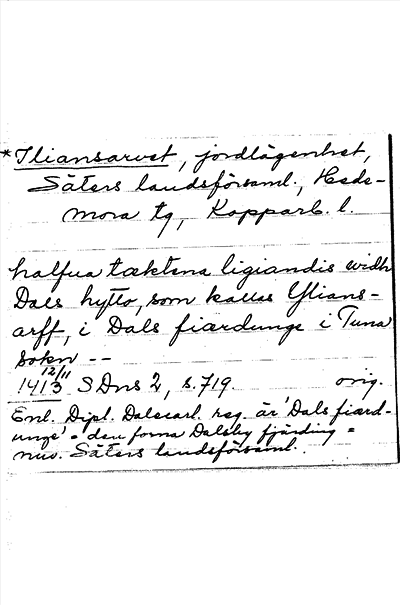 *Iliansarvet, jordlägenhet,
Säters landsförsaml., Hede-
mora tg, Kopparb. l.
halfua tæktena ligiandis widh
Dals hytto, som kallas Ylians-
arff, i Dals fiærdunge i Tuna
sokn --
12/11
1413 SDns 2, s. 719 orig.
Enl. Dipl. Dalecarl. reg. är 'Dals fiærd-
unge' = den forna Dalsby fjärding =
nuv. Säters landsförsaml.